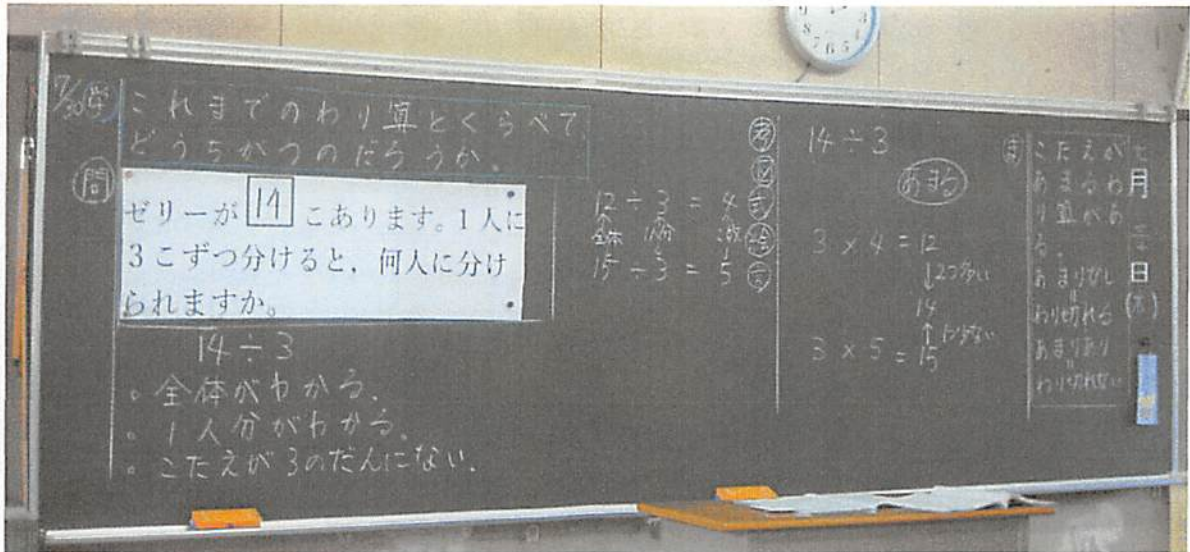 これまでのわり算とくらべて、
どうちがうのだろうか。
問
ゼリーが 14 こあります。1人に
3こずつ分けると，何人に分け
られますか。
14÷3
。全体がわかる。
。1人分がわかる。
。こたえが3のだんにない。
12÷3=4
全体
15÷3=5
考
図
式
絵
言
14÷3
あまる
3×4=12
↓2つ多い
14
↑1つ少ない
3×5=15
ま
こたえが
あまるわ
り算があ
る。
あまりなし
わり切れる
あまりあり
わり切れない
月
日
(木)